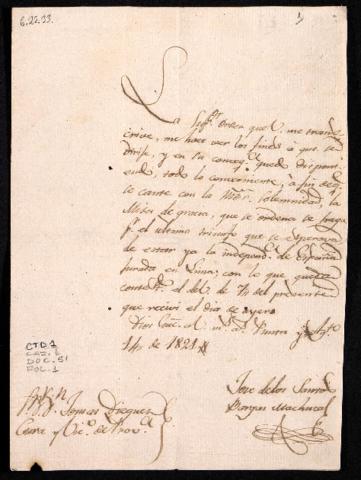 6.22.33.
1
La Sup.or Orden que V. me transcrive, me hace ver los fines à que se
dirije, y en su conseq.a quedo disponiendo, todo lo conveniente, à fin de q.e
se cante con la mayor solemnidad, la
Misa de gracia, que se ordena se haga
p.r el ultimo triunfo que se
de estar ya la independ.a de España
jurada en Lima; con lo que quedo
contextado el de V. de 11 del presente
que recivi el dia de ayer
Dios Gue. à V. m.s a.s Piura y Ag.to
14 de 1821
Jose de los Santos
Vargas Machuca
S.or D.n Tomas Dieguez
Cura y Vic.o de Prov.a
CTD.1
CAJ.1
DOC.51
FOL.1